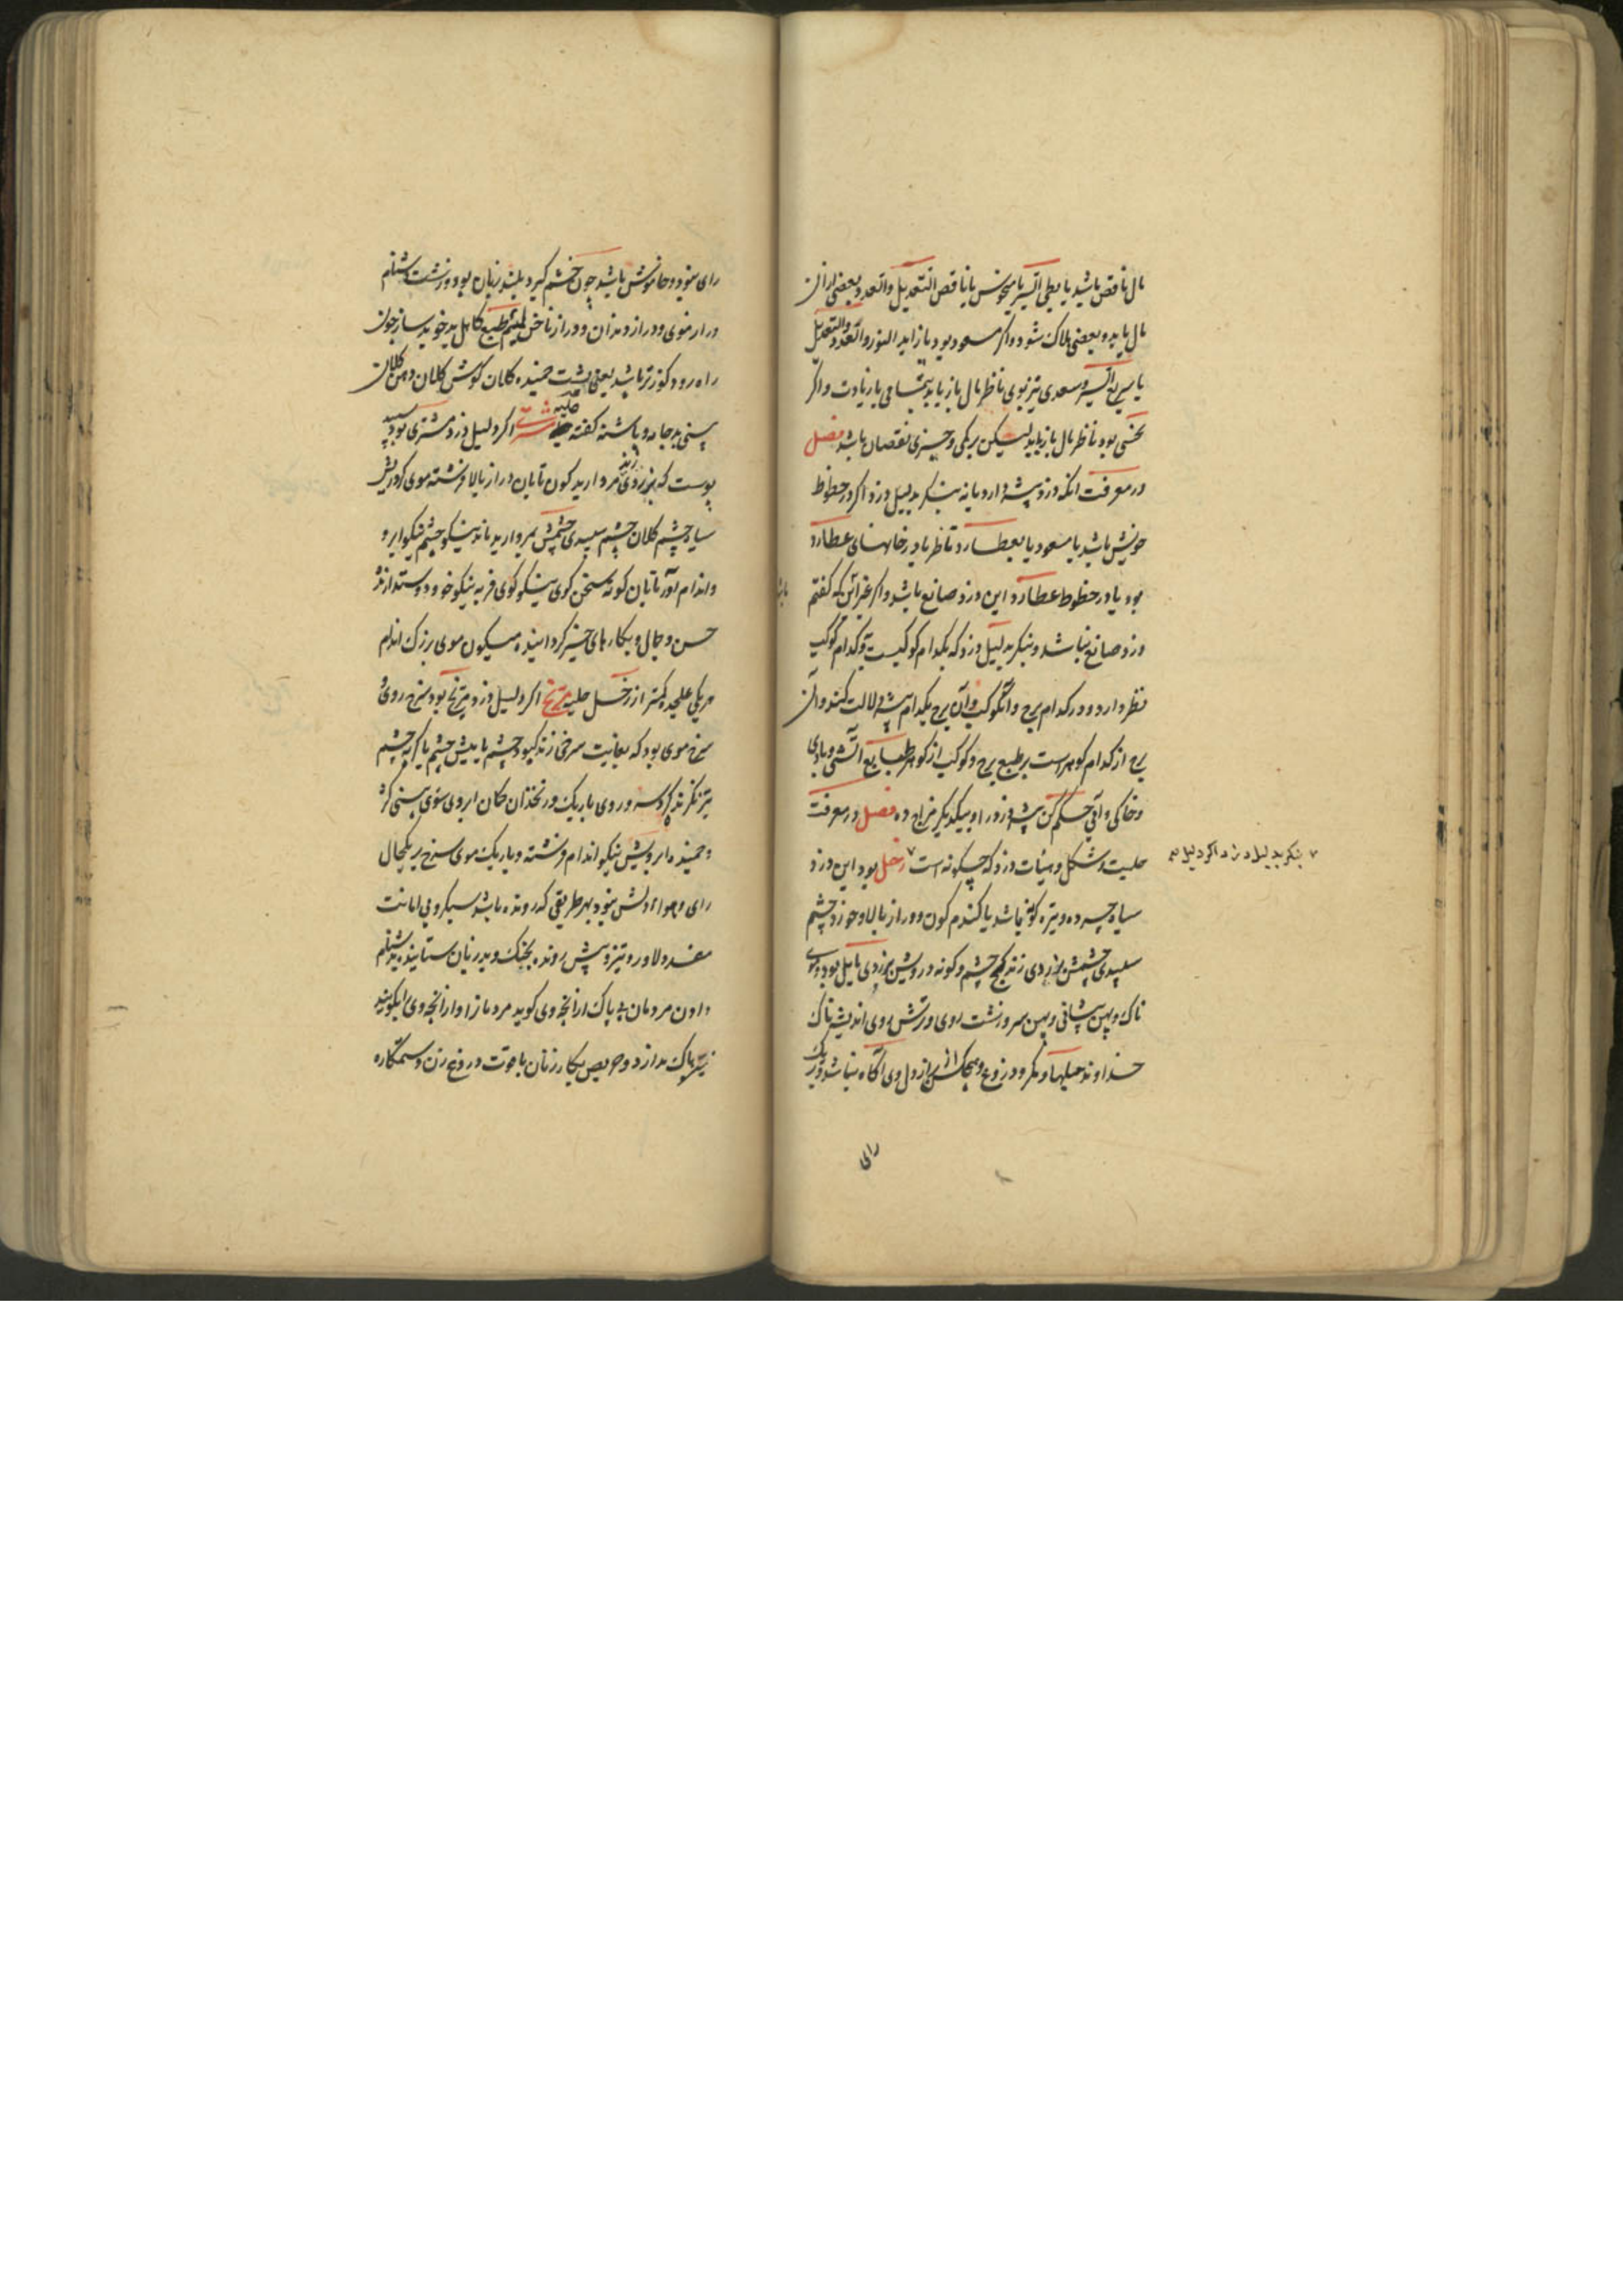 مال ناقص باشد یا بطی السیر یا منحوس یا ناقص التعدیل والعدد و بعضی از ان
مال یابد و بعضی هلاک شود و اگر مسعود بود یا زاید النور والعدد والتعدیل
یا سریع السیر و سعدی نیز بوی ناظر مال باز یابد بتمامی یا زیادت و اگر
نحسی بود ناظر مال باز یابد لیکن بریکی و چیزی نقصان باشد فصل
در معرفت انکه دزد پیشه دارد یا نه بنگر بدلیل دزد اگر در حظوظ
خویش باشد یا مسعود یا بعطارد ناظر یا در خانهای عطارد
بود یا در حظوظ عطارد این دزد صانع باشد و اگر غیر آنکه گفتم
باشد
دزد صانع نباشد و بنگر بدلیل دزد که بکدام کوکبست و کدام کوکب
نظر دارد و در کدام برج و آنکوکب و آن برج بکدام پیشه دلالت کند و آن
برج از کدام گوهر است بر طبع برج و کوکب از گوهر طبایع آتشی و بادی
و خاکی و آبی حکم کن پیشه دزد را و بیکدیگر مزاج ده فصل در معرفت
حلیت و شکل و هیئات دزد که چگونه است ۷ زحل بود این دزد
۷ بنگر بدلیل دزد اگر دلیل
سیاه چرده و تیره گونه باشد یا گندم گون و دراز بالا و خورد چشم
سپیدی چشمش بزردی زند کج چشم و گونه درویش بزردی مایل بود و موی
ناک و پهن پیشانی و پهن سر و زشت روی و ترش روی اندیشه ناک
خداوند حیلها و مکر و دروغ و هیچکس از راز دل وی آگاه نباشد و تاریک
رای
رای بود و خاموش باشد چون خشم گیرد بلند زبان بود و زشت دشنام
دراز موی و دراز دندان و دراز ناخن لئیم طبع کاهل بدخو بدساز چون
راه رود کوزتر باشد یعنی پشت خمیده کلان گوش کلان دهن کلان
بینی بد جامه و پاشنه کفته حلیه مشتری اگر دلیل دزد مشتری بود سپید
پوست که بزردی زند مروارید گون تابان دراز بالا فرشته موی گرد ریش
سیاه چشم کلان چشم سپیدی چشمش بمروارید ماند نیکو چشم نیکو ابرو
و اندام آور تابان گونه سخن گوی نیکو گوی فربه نیکو خو و دوستدارنده
حسن و جمال و بکارهای خیر گرداننده میگون موی بزرگ اندام
هر یکی علیحده کمتر از زحل حلیه مریخ اگر دلیل دزد مریخ بود سرخ روی و
سرخ موی بود که بغایت سرخی زند کبود چشم یا میش چشم یا گربه چشم
تیز نگرنده گرد سر و روی باریک و زنخدان کمان ابروی سوی بینی گرد
و خمیده ابرویش نیکو اندام فرشته و باریک موی سرخ بریکحال
رای و هوا و دلش نبود بهر طریقی که رونده باشد سبکرو بی امانت
مفسد دلاور و تیز و پیش رونده بجنگ و بد زبان ستاینده بدشنام
دادن مردمان بی باک از آنچه وی گوید مردمانرا و از آنچه ویرا گویند
نیز باک ندارد و حریص بکار زنان با قوت دروغ زن و ستمکاره